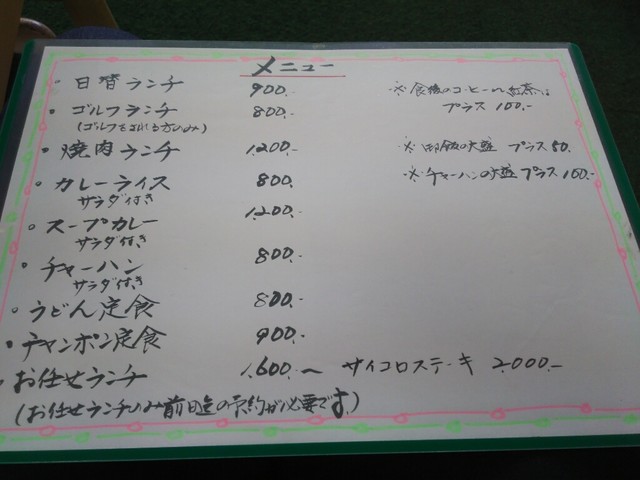 メニュー
・日替ランチ 900.-
・ゴルフランチ 800.-
(ゴルフをされる方のみ)
・焼肉ランチ 1,200.-
・カレーライス 800.-
サラダ付き
・スープカレー 1,200.-
サラダ付き
・チャーハン 800.-
サラダ付き
・うどん定食 800.-
・チャンポン定食 900.-
・お任せランチ 1,600.-～ サイコロステーキ 2,000.-
(お任せランチのみ前日迄の予約が必要です。)
※食後のコーヒー、紅茶は
プラス 100.-
※御飯の大盛 プラス 50.
※チャーハンの大盛 プラス 100.-